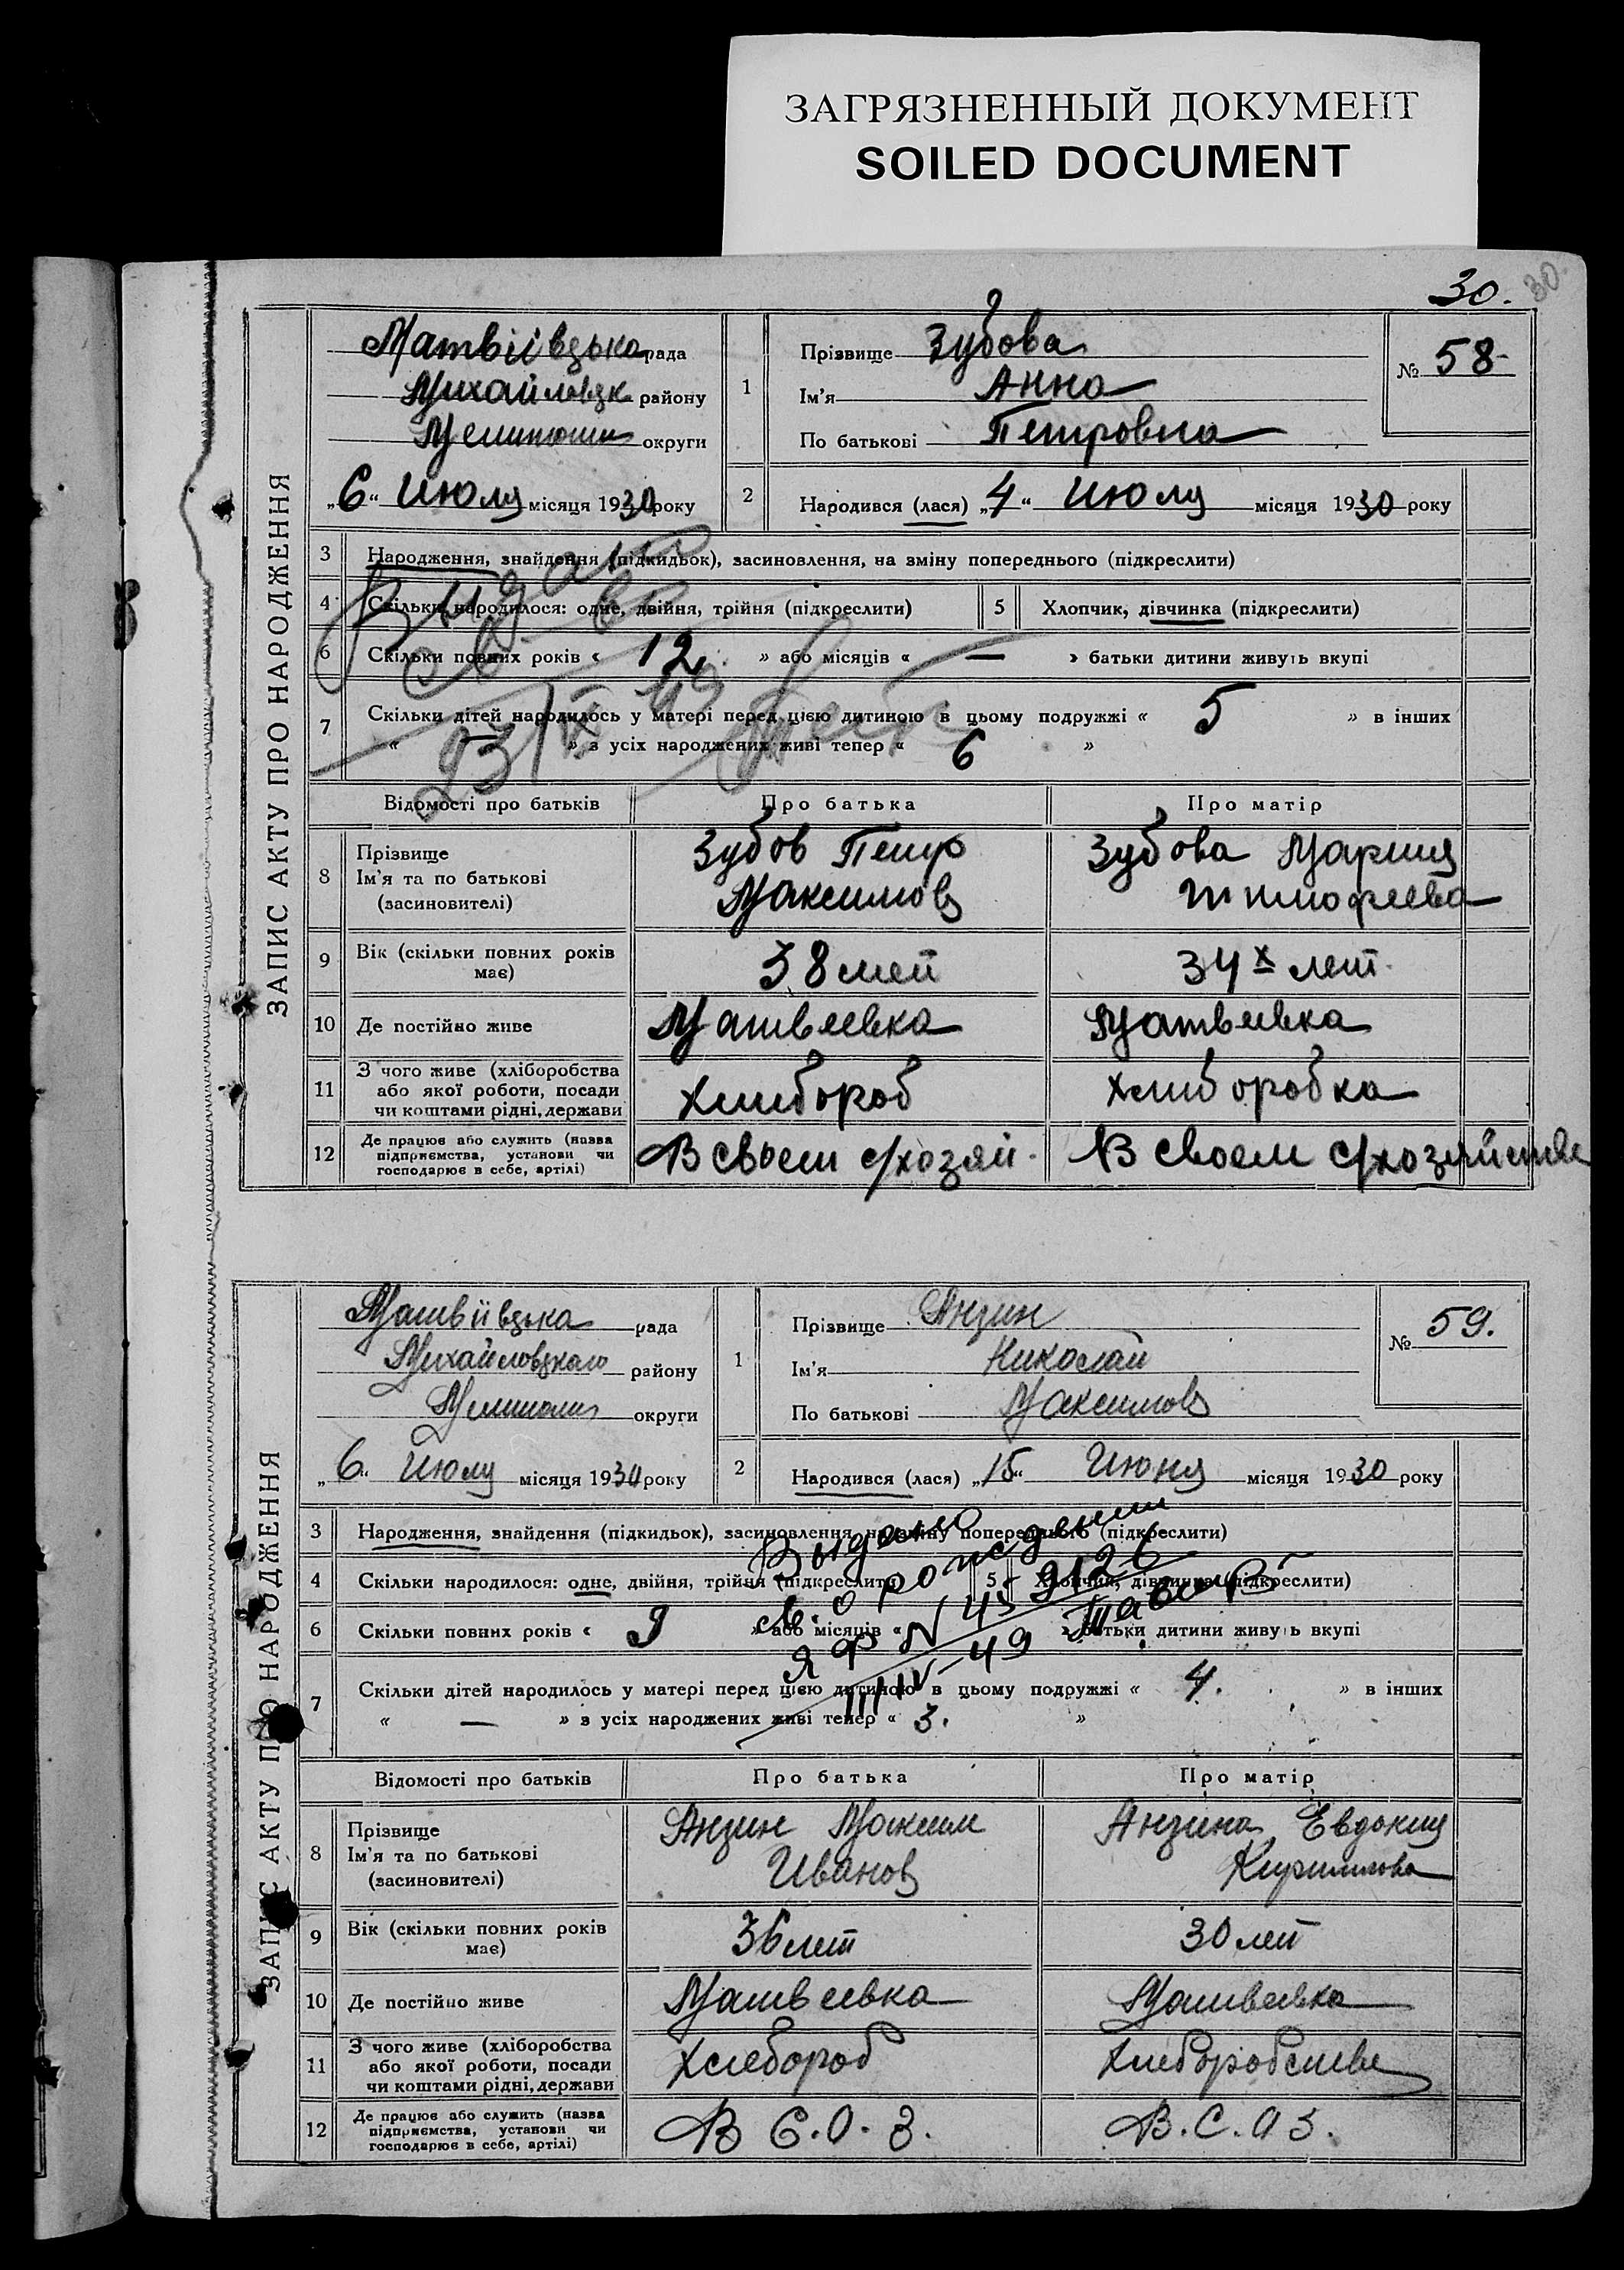 ЗАГРЯЗНЕННЫЙ ДОКУМЕНТ
SOILED DOCUMENT
30. 30.
ЗАПИС АКТУ ПРО НАРОДЖЕННЯ
Матвіівцька рада
Михайловцк району
округи
„6“ Июля місяця 1930 року
1
Прізвище Зубова
Ім'я Анна
По батькові Петровна
№ 58
2
Народився (лася) „4“ Июля місяця 1930 року
3 Народження, знайдення (підкидьок), засиновлення, на зміну попереднього (підкреслити)
4 Скільки народилося: одне, двійня, трійня (підкреслити) 5 Хлопчик, дівчинка (підкреслити)
6 Скільки повних років « 12 » або місяців « — » батьки дитини живуть вкупі
7 Скільки дітей народилось у матері перед цією дитиною в цьому подружжі « 5 » в інших
« — » з усіх народжених живі тепер « 6 »
Выдано
св-во
Відомості про батьків Про батька Про матір
8 Прізвище Ім'я та по батькові (засиновителі)
Зубов Петр
Максимов
Зубова Мария
Тимофеева
9 Вік (скільки повних років має) 38 лет 34х лет
10 Де постійно живе Матвеевка Матвеевка
11 З чого живе (хліборобства або якої роботи, посади чи коштами рідні, держави
Хлебороб Хлеборобка
12 Де працює або служить (назва підприємства, установи чи господарює в себе, артілі)
В своем с/хозяй. В своем с/хозяйстве
ЗАПИС АКТУ ПРО НАРОДЖЕННЯ
Матвіівцька рада
Михайловцкаго району
округи
„6“ Июля місяця 1930 року
1
Прізвище Анзин
Ім'я Николай
По батькові Максимов
№ 59.
2
Народився (лася) „15“ Июня місяця 1930 року
3 Народження, знайдення (підкидьок), засиновлення, на зміну попереднього (підкреслити)
4 Скільки народилося: одне, двійня, трійня (підкреслити) 5 Хлопчик, дівчинка (підкреслити)
6 Скільки повних років « 9 » або місяців « » батьки дитини живуть вкупі
7 Скільки дітей народилось у матері перед цією дитиною в цьому подружжі « 4. » в інших
« — » з усіх народжених живі тепер « 3. »
Выдано
св. о рождении
ЯФ N 459126
III/IV-49
Відомості про батьків Про батька Про матір
8 Прізвище Ім'я та по батькові (засиновителі)
Анзин Максим
Иванов
Анзина Евдокия
Кириллова
9 Вік (скільки повних років має) 36 лет 30 лет
10 Де постійно живе Матвеевка Матвеевка
11 З чого живе (хліборобства або якої роботи, посади чи коштами рідні, держави
Хлебороб
12 Де працює або служить (назва підприємства, установи чи господарює в себе, артілі)
В С.О.З. В.С.О З.